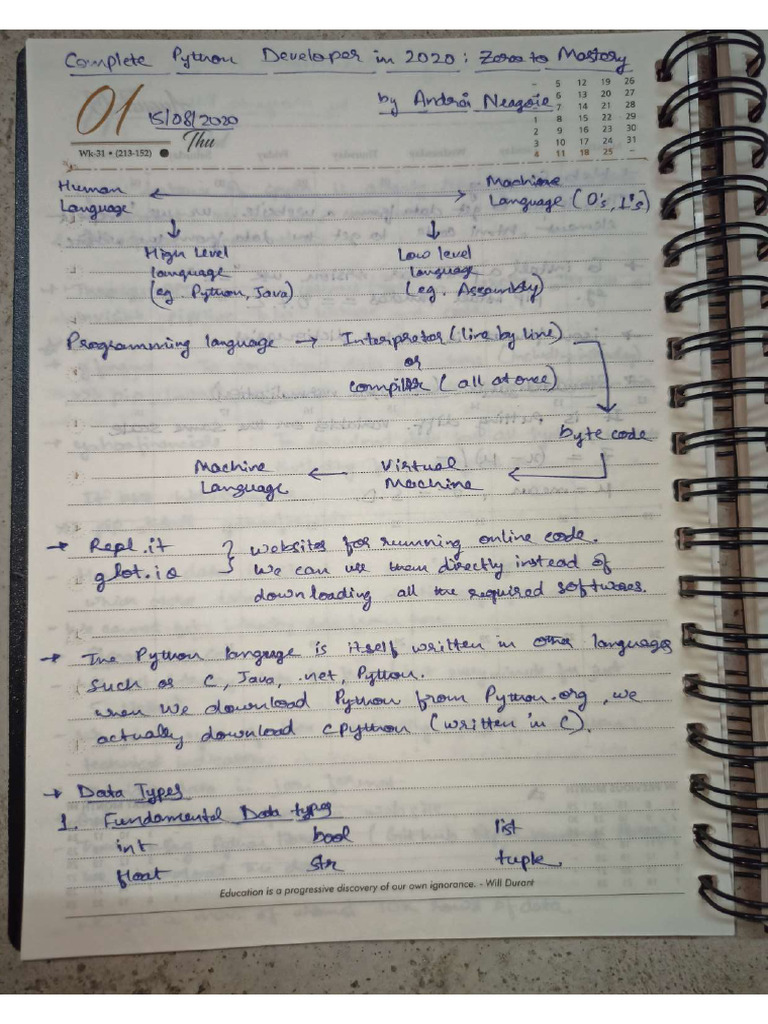 Complete Python Developer in 2020: Zero to Mastery
by Andrei Neagoie
01
15/08/2020
Thu
Wk-31 • (213-152)
- 5 12 19 26
- 6 13 20 27
- 7 14 21 28
1 8 15 22 29
2 9 16 23 30
3 10 17 24 31
4 11 18 25 -
Human Language ⟷ Machine Language (0's, 1's)
↓ ↓
High Level Low level
language language
(eg. Python, Java) (eg. Assembly)
Programming language → Interpretor (line by line)
or
compiler (all at once)
byte code
Machine ← Virtual ←
Language Machine
→ Repl.it } websites for running online code.
glot.io } We can use them directly instead of
downloading all the required softwares.
→ The Python language is itself written in other languages
such as C, Java, .net, Python.
when we download Python from Python.org, we
actually download cPython (written in C).
→ Data Types
1. Fundamental Data types
int bool list
float str tuple
Education is a progressive discovery of our own ignorance. - Will Durant